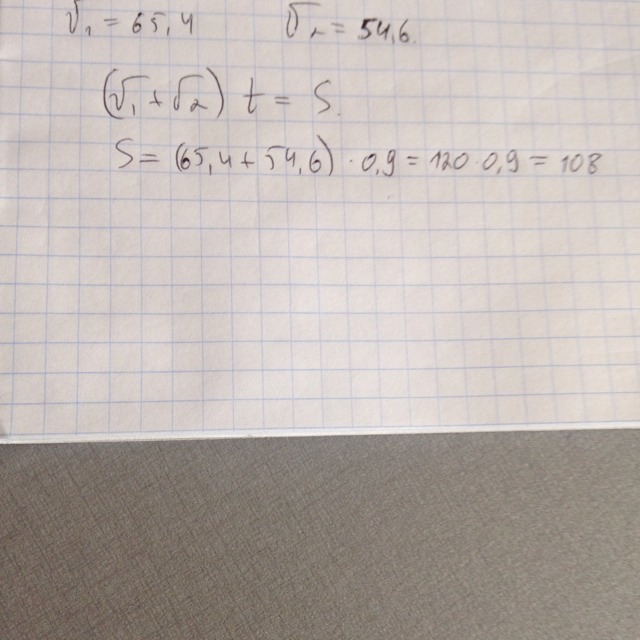 v₁ = 65,4 v₂ = 54,6
(v₁ + v₂) t = S.
S = (65,4 + 54,6) · 0,9 = 120 · 0,9 = 108